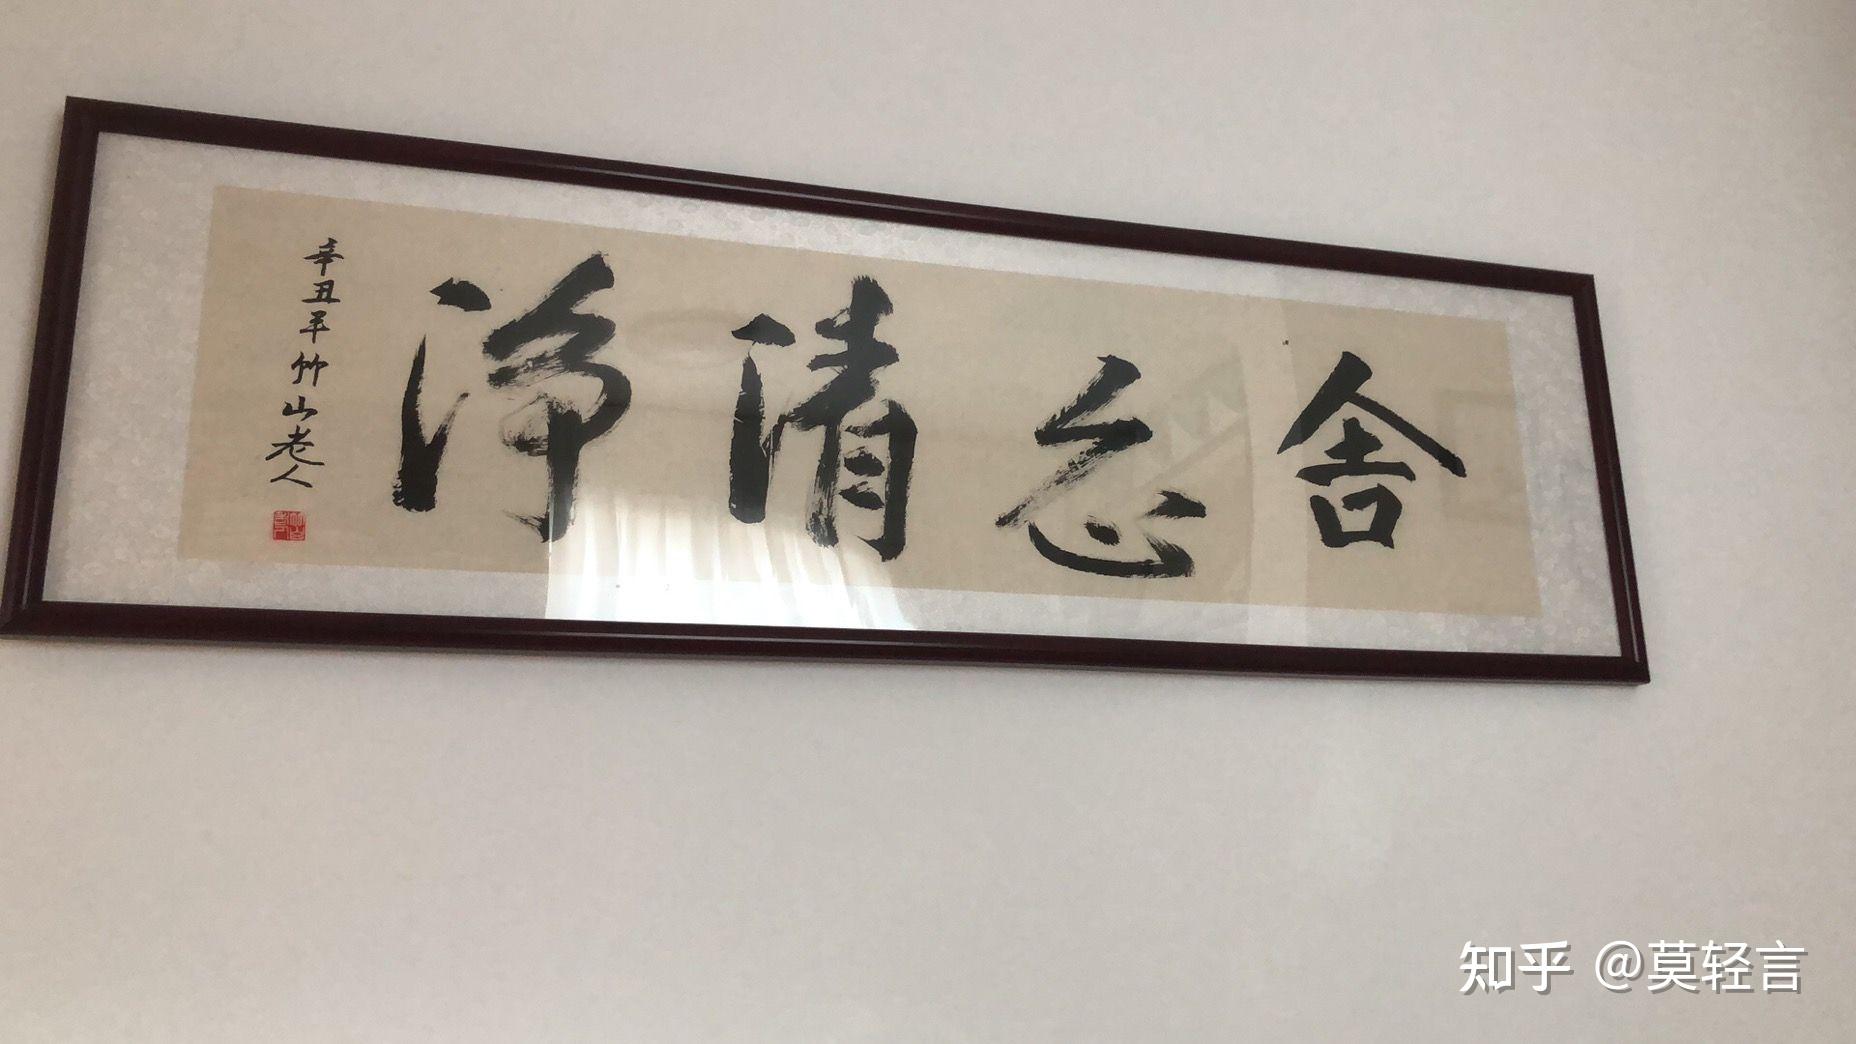 舍念清淨
辛丑年竹山老人
知乎 @莫轻言